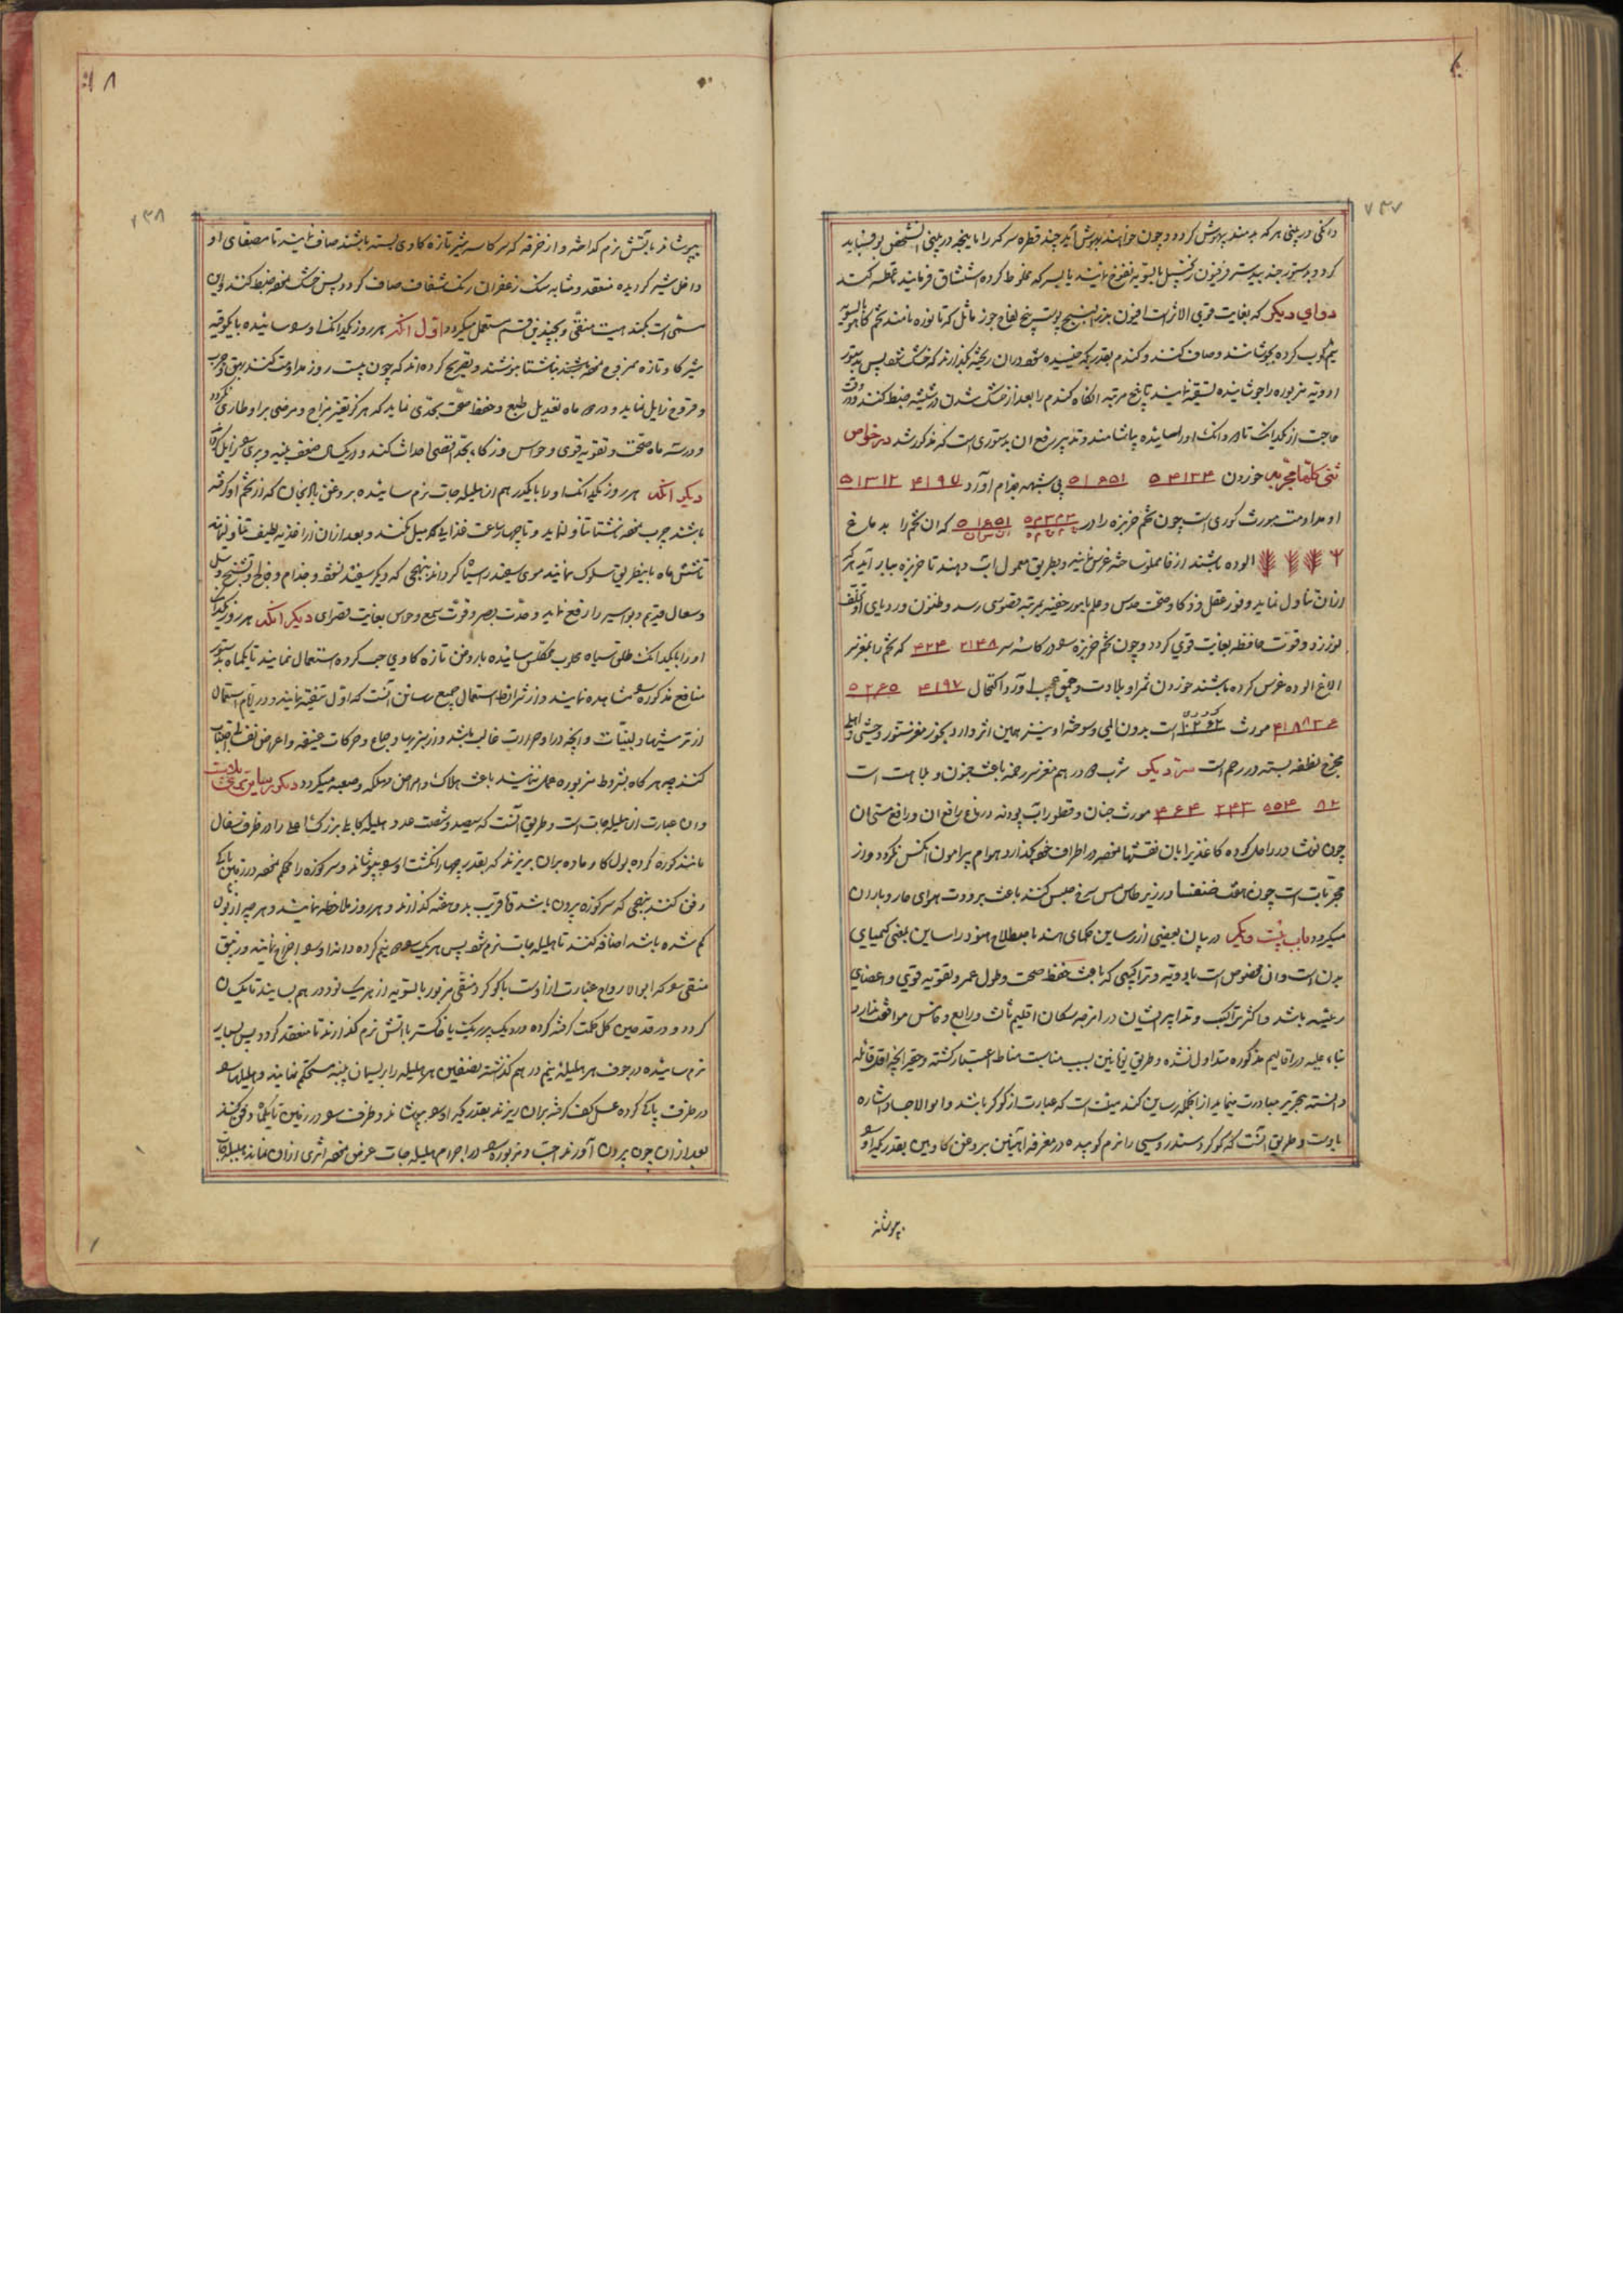 ۷۳۷
دانکی در بینی هرکه بدمند بیهوش کردد و چون خواهند بهوش آید چند قطره سرکه را در بینی
کردد و بدستور جند بیدستر فرفیون زنجبیل بالسویه نفوخ نمایند یا بسرکه مخلوط کرده استنشاق فرمایند عطسه کند
دوای دیکر که بغایت قوی الاثر است افیون بزرالبنج پوست بیخ لفاح جوز ماثل که تاتوره نامند تخم کاهو بالسویه
نیم کوب کرده بجوشانند و صاف کنند و کندم بقدریکه خیسیده شود در ان ریخته بکذارند که خشک شود پس بدستور
ادویه مزبوره را جوشانیده تسقیه نمایند تا پنج مرتبه انکاه کندم را بعد از خشک شدن در شیشه ضبط کنند و در وقت
حاجت از یکدانک تا دو دانک او را ساییده بیاشامند و تدبیر رفع ان بدستوری است که مذکور شد در خواص
خوردن ۵۱۶۵۱ بی شبهه جذام آورد ۴۱۹۷ ۵۱۳۱۲
او مداومت مورث کوری است چون تخم خربزه را در ۵۱۶۵۱ که ان تخم را به دماغ
الوده باشند از فاملوت ساخته غرس نمایند و بطریق معمول آب دهند تا خربزه ببار آید هرکه
ازان تناول نماید وفور عقل و ذکا و صحت حدس و علم بامور خفیه بمرتبه قصوی رسد و ظنون
و قوت حافظه بغایت قوی کردد و چون تخم خربزه در کاسه سر ۲۱۳۸ ۴۲۴ که تخم را بمغز سر
الاغ الوده غرس کرده باشند خوردن ثمر او بلادت و حمق عجیب آورد و اکتحال ۴۱۹۷ ۵۲۶۵
مورث است بدون المی و سوخته او نیز همین اثر دارد
نطفه بسته در رحم است سر دیکر شرب در هم مغز سر باعث جنون و بلاهت است
۸۲ ۵۵۴ ۲۴۳ ۴۶۴ مورث جنان و قطور آب پودنه در دماغ رافع ان و رافع مستی ان
چون در را حل کرده کاغذ را بان نقشها در اطراف خود بکذارد هوام پیرامون انکس نکردد و از
مجربات است چون خنفسا در زیر طاس مس سرخ حبس کنند باعث برودت هوای حار و باران
میکردد باب بیست و یکم در بیان بعضی از رساین حکمای هند باصطلاح هنود رساین یعنی کیمیای
بدن است و ان مخصوص است بادویه و تراکیبی که باعث حفظ صحت و طول عمر و تقویه قوی و اعضای
رئیسه باشد و اکثر تراکیب و تدابیر ایشان در امزجه سکان اقلیم ثالث و رابع و خامس موافقت ندارد
بناء علیه در اقالیم مذکوره متداول نشده و طریق یونانیین بسبب مناسبت مناط اعتبار کشته و حقیر آنچه اقل غائله
دانسته بتحریر مبادرت مینماید از انجمله رساین کندهیت است که عبارت از کوکرد باشد و ابوالاجساد اشاره
باوست و طریق آنست که کوکرد سندروسی را نرم کوبیده در مغرفه آهنین بروغن کاو بین بقدریکه او
بپوشاند
۷۳۸
بپوشاند بآتش نرم کداخته و از خرقه که بر کاسه شیر تازه کاوی بسته باشند صاف نمایند تا مصفای او
داخل شیر کردیده منعقد و مشابه سنک زعفران رنک شفاف صاف کردد پس خشک نموده ضبط کنند و این
مسمی است بکندهیت منقی و بچندین قسم مستعمل میکردد اول انکه هر روز یکدانک او ساییده با یک وقیه
شیر کاو تازه ممزوج نموده ناشتا بنوشند و تصریح کرده اند که چون بیست روز مداومت کنند بهق و جرب
و قروح زایل نماید و در دو ماه تعدیل طبع و حفظ صحت بحدی نماید که هرکز تغییر مزاج و مرضی بر او طاری نکردد
و در سه ماه صحت و تقویه قوی و حواس و ذکاء بحد اقصی احداث کند و در یکسال ضعف بنیه و پیری زایل کند
دیکر انکه هر روز یکدانک او را با یکدرهم از هلیله جات نرم ساییده بروغن بادنجان که از تخم او کرفته
باشند چرب نموده ناشتا تناول نماید و تا چهار ساعت غذا میل نکنند و بعد ازان از اغذیه لطیف تناول نمایند
تا شش ماه باینطریق سلوک نمایند موی سفید را سیاه کرداند بنهجی که دیکر سفید نشود و جذام و فالج و تشنج و سل
و سعال قدیم و بواسیر را رفع نماید و حدت بصر و قوت سمع و حواس بغایت قصوای دیکر انکه هر روز یکدانک
او را با یکدانک طلق سیاه محلوب مکلس ساییده با روغن تازه کاوی حب کرده استعمال نمایند تا یکماه بدستور
منافع مذکوره مشاهده نمایند و از شرائط استعمال جمیع رساین آنست که اول تنقیه نمایند و در ایام استعمال
از ترشیها و لبنیات و آنچه در او حرارت غالب باشد و از سبزیها و جماع و حرکات عنیفه و اعراض نفسانی اجتناب
کنند چه هرکاه بشروط مزبوره عمل ننمایند باعث هلاک و امراض مهلکه و صعبه میکردد دیکر رساین
و ان عبارت از هلیله جات است و طریق آنست که سیصد و شصت عدد هلیله کابلی بزرک را در ظرف سفال
مانند کوزه کرده بول کاو ماده بران بریزند که بقدر چهار انکشت او بپوشاند و سر کوزه را محکم نموده در زمین
دفن کنند بنهجی که سر کوزه بیرون باشد تا قریب بدو هفته کذارند و هر روز ملاحظه نمایند و هر چه از بول
کم شده باشد اضافه کنند تا هلیله جات نرم شود پس هریک نیم کرده دانه او اخراج نمایند و زیبق
منقی که ابوالارواح عبارت ازاوست با کوکرد منقی مزبور بالسویه از هریک نود درهم بسایند تا یکسان
کردد و در قدحین کل حکمت کرفته کرده در دیک پر ریک یا خاکستر بآتش نرم کذارند تا منعقد کردد پس بسیار
نرم ساییده در جوف هر هلیله نیم درهم کذاشته نصفین هر هلیله را بریسمان پنبه مستحکم نمایند و هلیلها
در ظرف پاکی کرده عسل کف کرفته بران ریزند بقدریکه او بپوشاند و ظرف در زمین تا یکماه دفن کنند
بعد ازان چون بیرون آورند در اجرام هلیله جات عرض نموده اثری ازان نماند هلیله جات